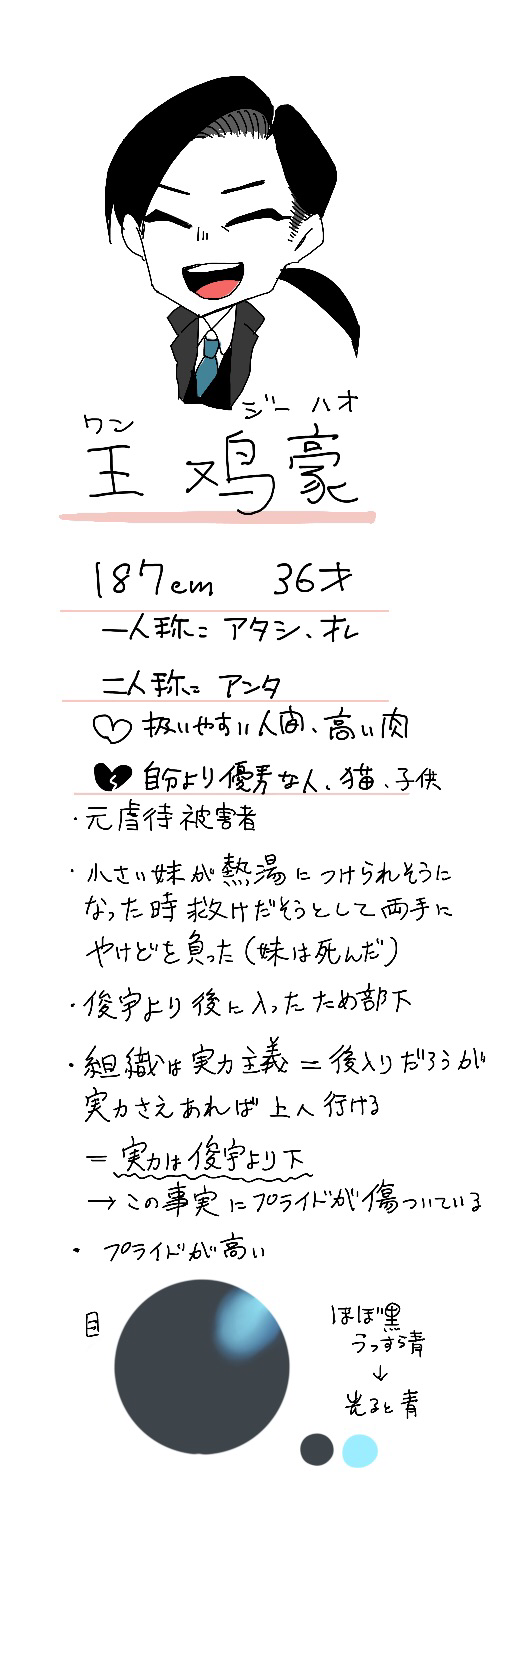 ワン ジーハオ
王 鸡豪
187cm 36才
一人称: アタシ、オレ
二人称: アンタ
♡ 扱いやすい人間、高い肉
💔 自分より優秀な人、猫、子供
・元虐待被害者
・小さい妹が熱湯につけられそうに
なった時救けだそうとして両手に
やけどを負った(妹は死んだ)
・俊宇より後に入ったため部下
・組織は実力主義=後入りだろうが
実力さえあれば上へ行ける
=実力は俊宇より下
→この事実にプライドが傷ついている
・プライドが高い
目
ほぼ黒
うっすら青
↓
光ると青